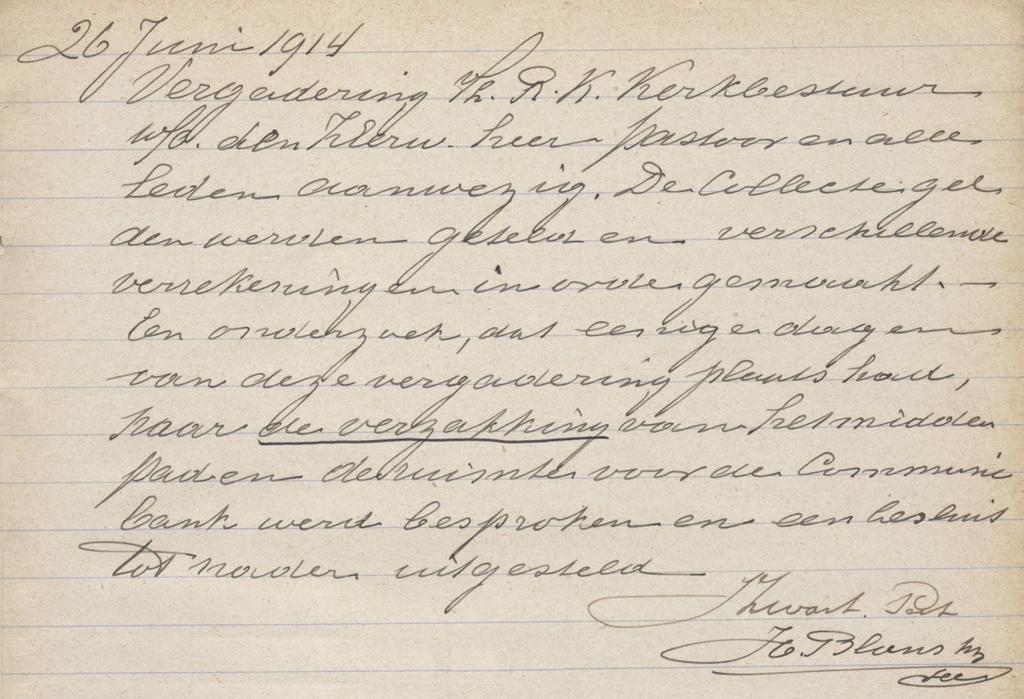 26 Juni 1914
Vergadering Th. R. K. Kerkbestuur
w/b. den ZEerw. heer pastoor en alle
leden aanwezig. De Collecte gel
den werden geteld en verschillende
verrekeningen in orde gemaakt. —
Een onderzoek, dat eenige dagen
van deze vergadering plaats had,
naar de verzakking van het midden
pad en de ruimte voor de Communie
bank werd besproken en een besluit
tot nader uitgesteld
Zwart. Past
H. Blans
sec